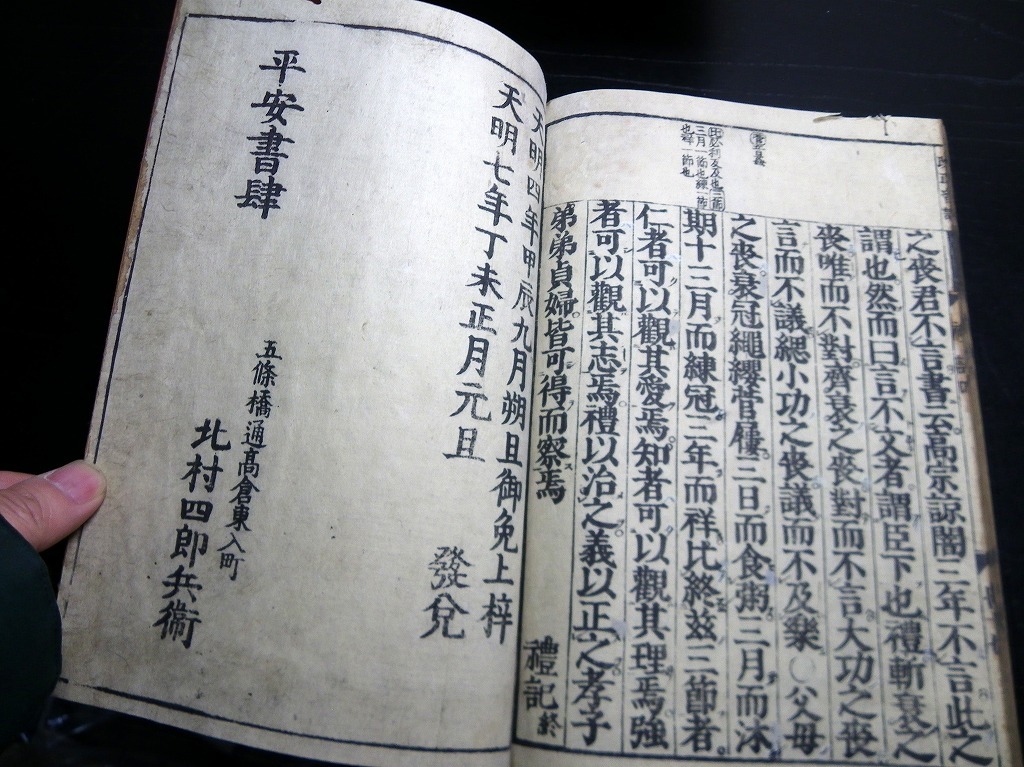 之喪君不言書云高宗諒闇三年不言此之
謂也然而曰言不文者謂臣下也禮斬衰之
喪唯而不對齊衰之喪對而不言大功之喪
言而不議緦小功之喪議而不及樂○父母
之喪衰冠繩纓菅屨三日而食粥三月而沐
期十三月而練冠三年而祥比終茲三節者
仁者可以觀其愛焉知者可以觀其理焉強
者可以觀其志焉禮以治之義以正之孝子
弟弟貞婦皆可得而察焉
禮記終
天明四年甲辰九月朔旦御免上梓
天明七年丁未正月元旦
發兌
平安書肆
五條橋通高倉東入町
北村四郎兵衞